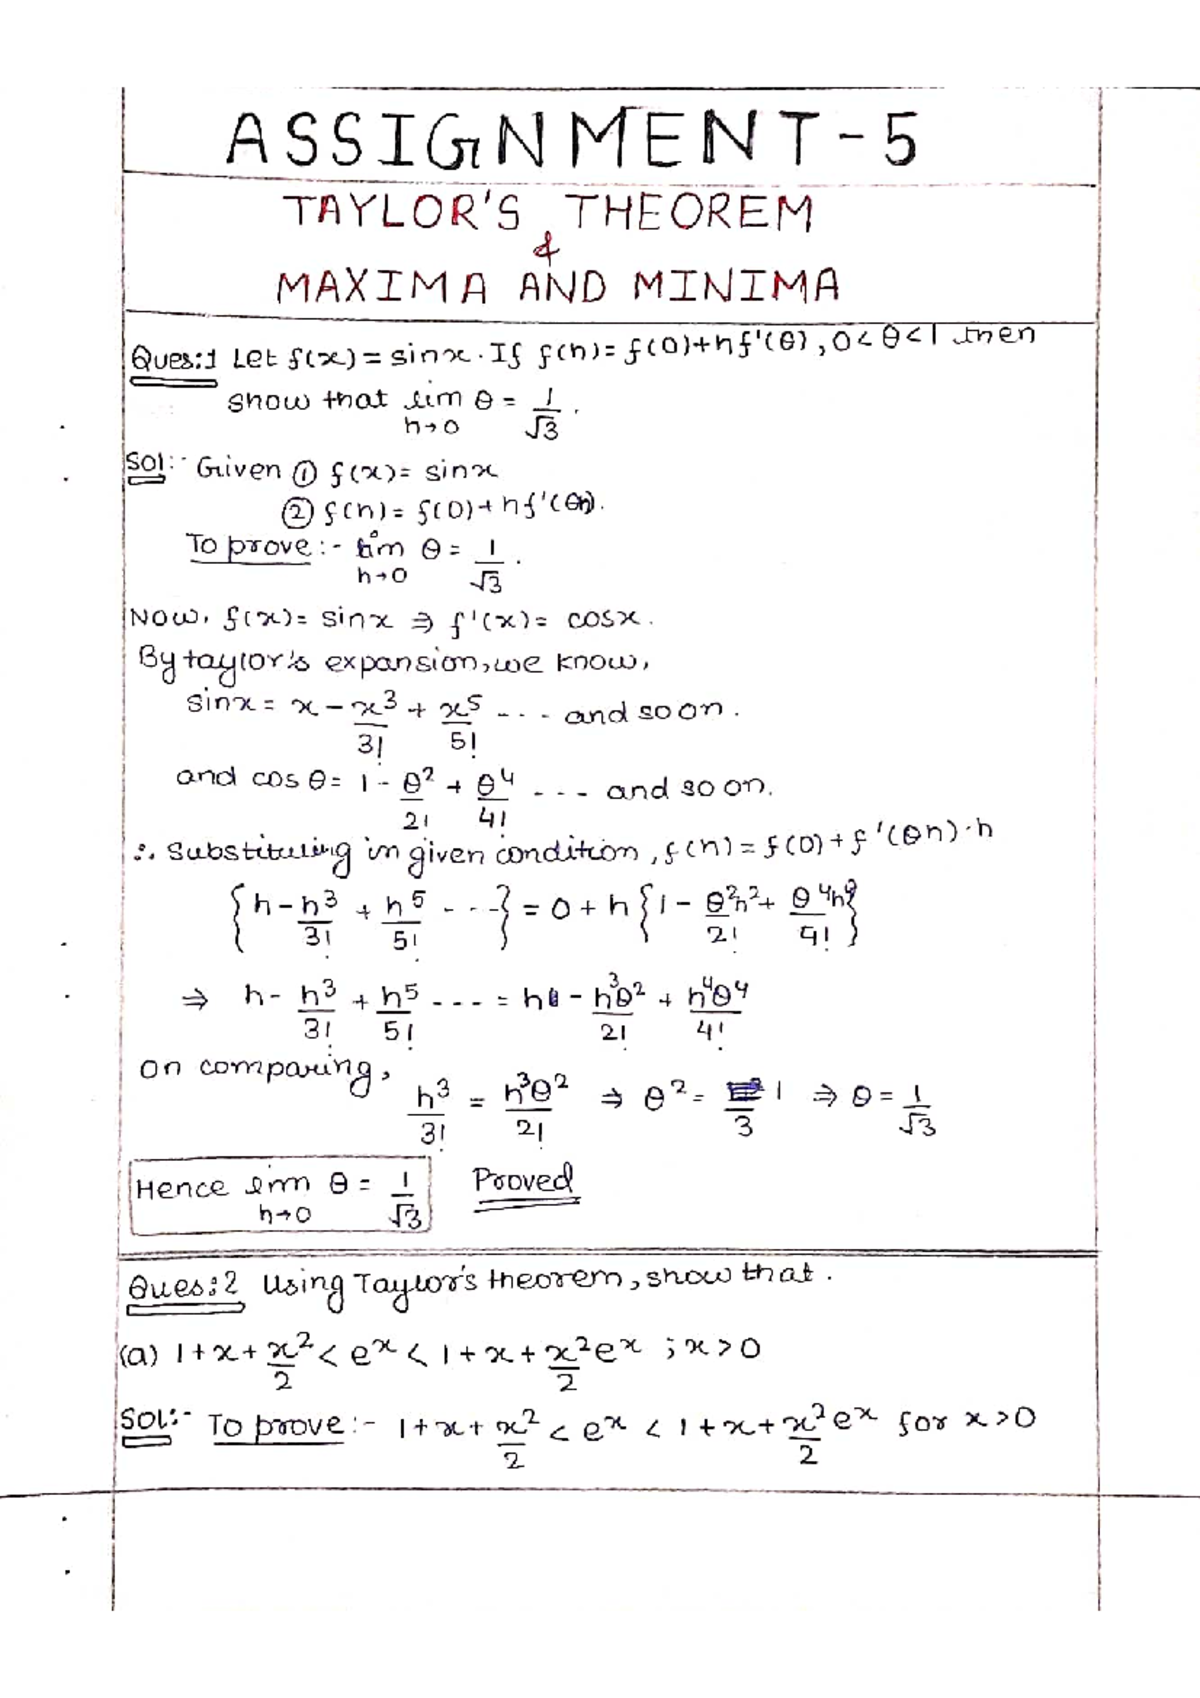 ASSIGNMENT-5
TAYLOR'S THEOREM
&
MAXIMA AND MINIMA
Ques:1 Let f(x) = sinx. If f(h) = f(0)+hf'(θ), 0<θ<1 then
show that lim θ = 1/√3.
h→0
Sol:- Given ① f(x) = sinx
② f(h) = f(0)+hf'(θh).
To prove:- lim θ = 1/√3.
h→0
Now, f(x) = sinx ⇒ f'(x) = cosx.
By taylor's expansion, we know,
sinx = x - x³/3! + x⁵/5! --- and so on.
and cos θ = 1 - θ²/2! + θ⁴/4! --- and so on.
∴ Substituting in given condition, f(h) = f(0)+f'(θh)·h
{h - h³/3! + h⁵/5! ---} = 0 + h{1 - θ²h²/2! + θ⁴h⁴/4!}
⇒ h - h³/3! + h⁵/5! --- = h - h³θ²/2! + h⁴θ⁴/4!
On comparing,
h³/3! = h³θ²/2! ⇒ θ² = 1/3 ⇒ θ = 1/√3
Hence lim θ = 1/√3 Proved
h→0
Ques:2 Using Taylor's theorem, show that.
(a) 1+x+x²/2 < eˣ < 1+x+x²/2 eˣ ; x>0
Sol:- To prove:- 1+x+x²/2 < eˣ < 1+x+x²/2 eˣ for x>0